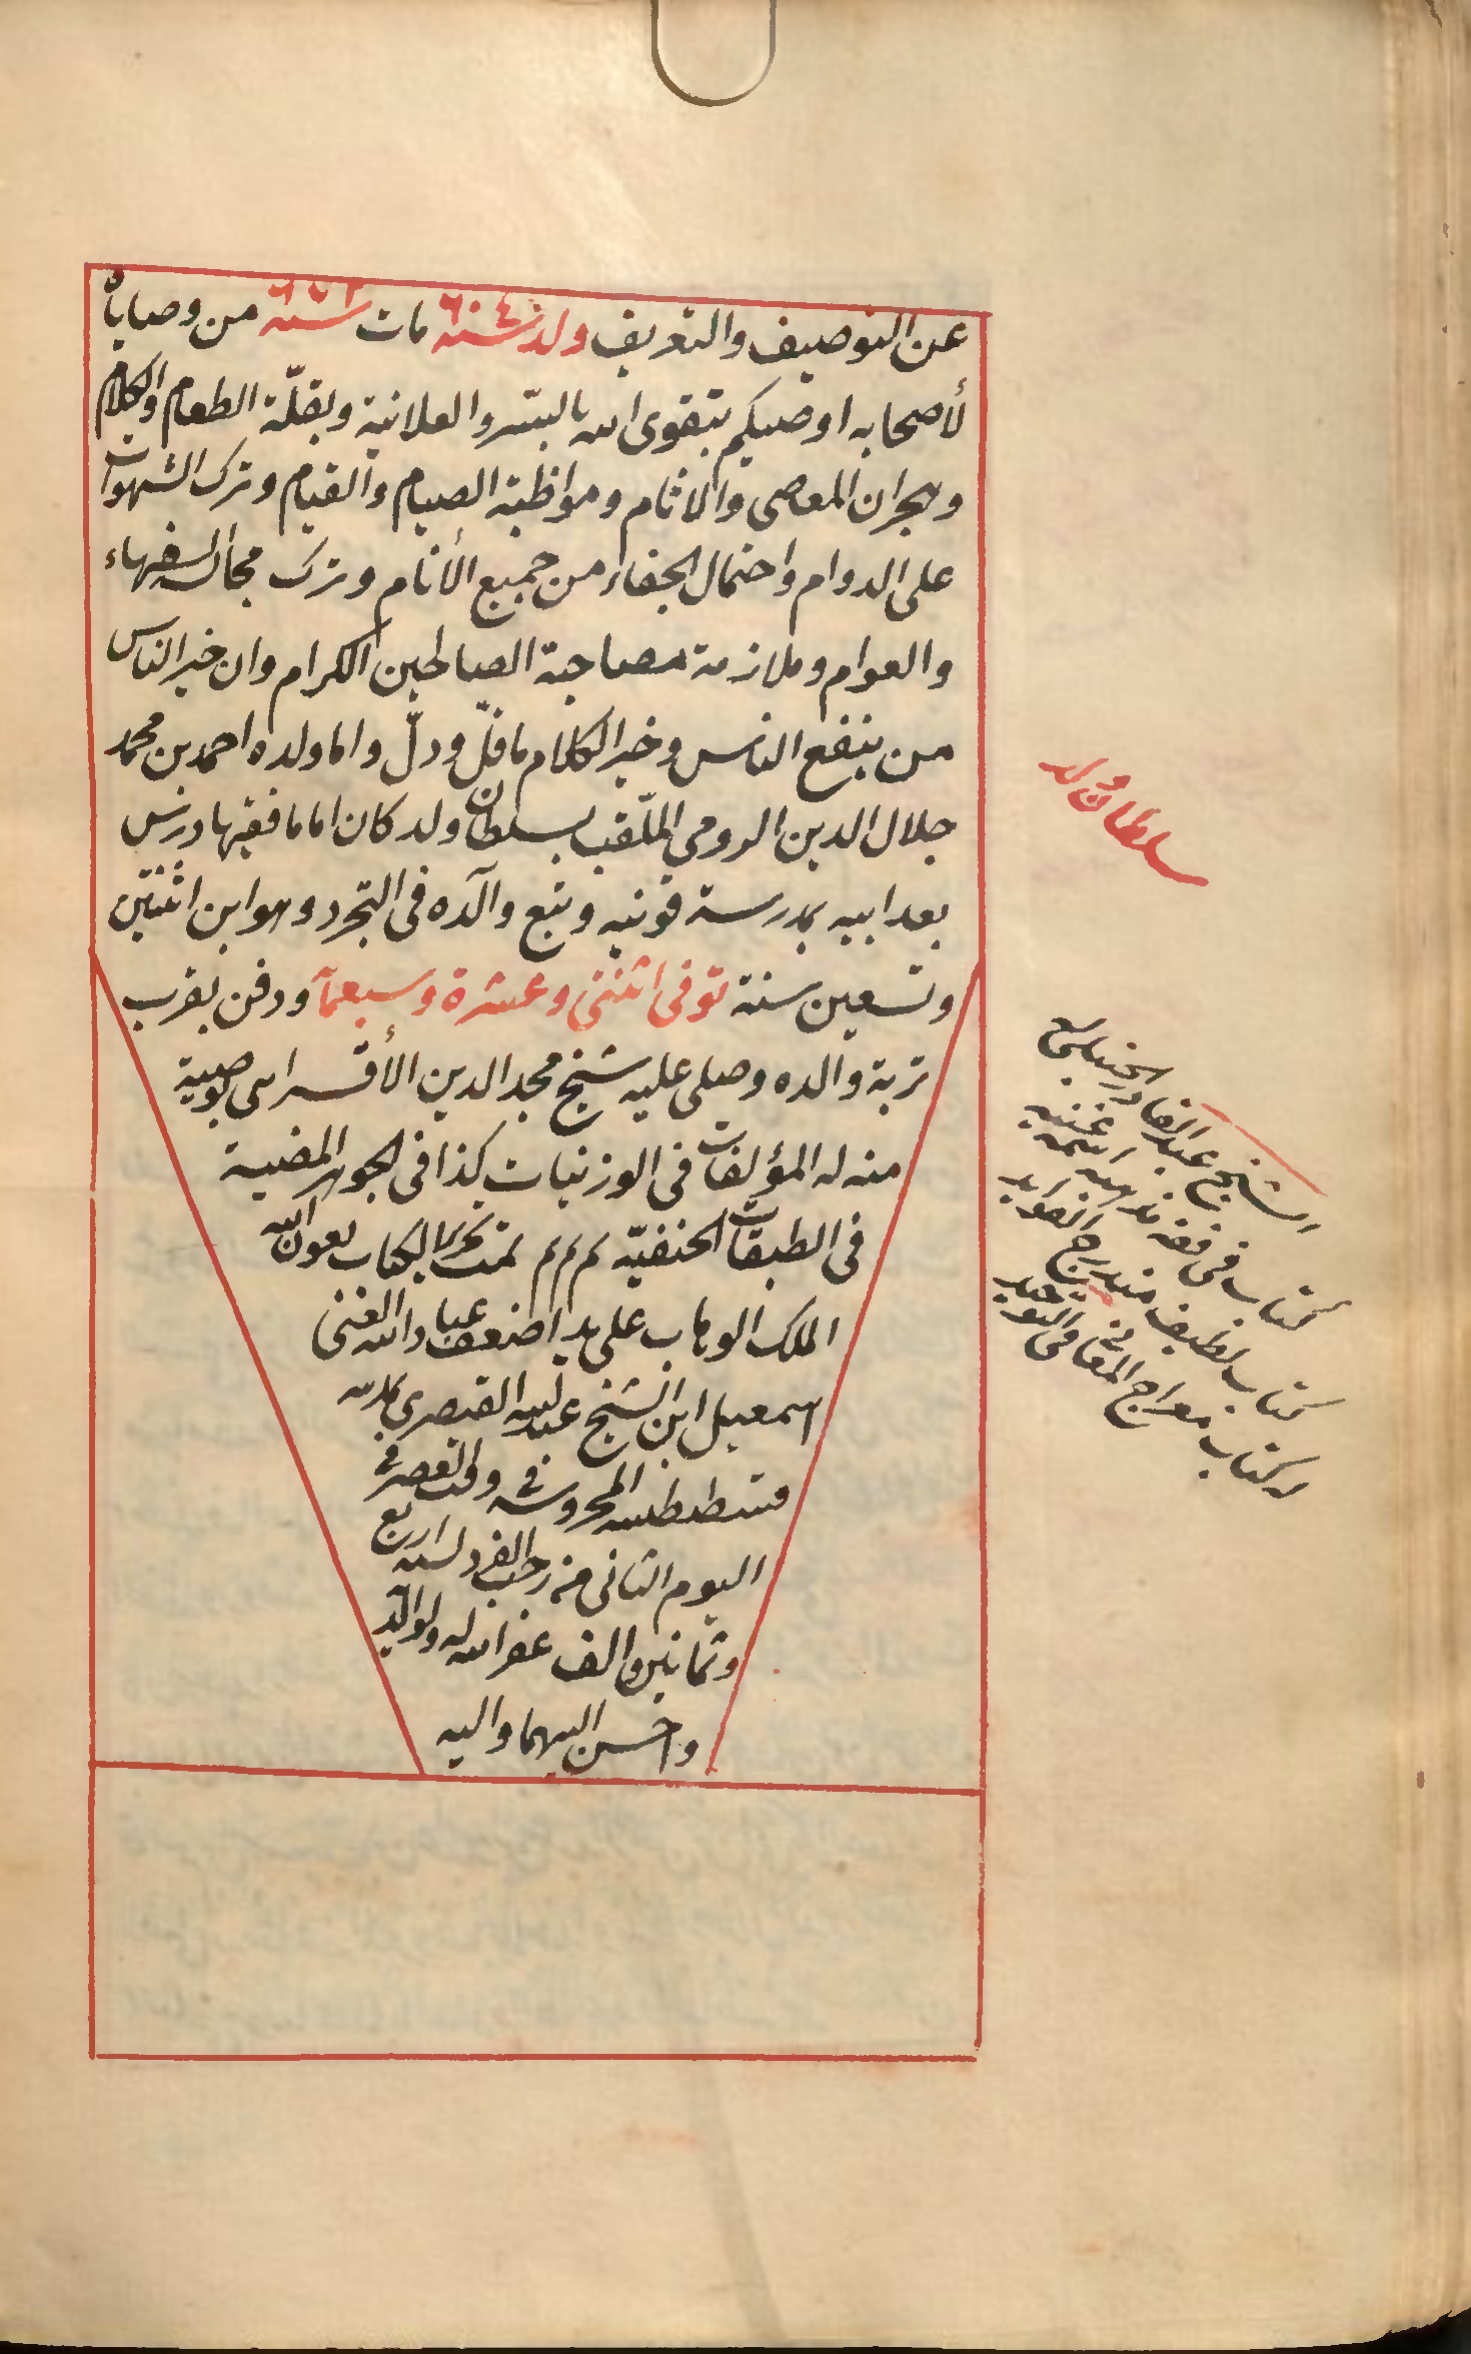 عن التوصيف والتعريف ولد سنة ٦٠٤ مات سنة ٦٧٢ من وصاياه
لأصحابه اوصيكم بتقوى الله بالسّر والعلانية وبقلّة الطعام والكلام
وهجران المعاصى والاثام ومواظبة الصيام والقيام وترك الشهوات
على الدوام واحتمال الجفاء من جميع الأنام وترك مجالسه السفهاء
والعوام وملازمة مصاحبة الصالحين الكرام وان خير الناس
من ينفع الناس وخير الكلام ما قلّ ودلّ واما ولده احمد بن محمد
جلال الدين الرومى الملّقب بسلطان ولد كان اماما فقيها درس
بعد ابيه بمدرسة قونيه وتبع والده فى التجرد وهو ابن اثنتين
وتسعين سنة توفى اثنتى وعشرة وسبعمآ ودفن بقرب
تربة والده وصلى عليه شيخ مجد الدين الأقسراى بوصية
منه له المؤلفات فى الوزنيات كذا فى الجوهر المضية
فى الطبقات الحنفيّه م م م تمت تحرير الكتاب بعون الله
الملك الوهاب على يد اضعف عباد الله الغنى
اسمعيل ابن الشيخ عبد الله القيصرى بلده
قسطنطنيه المحروسه فى وقت العصر فى
اليوم الثانى من رجب الفرد لسنه اربع
وثمانين والف غفر الله له ولوالديه
واحسن اليهما واليه
سلطان ولد
الشيخ عبد القادر الجيلى
كتاب فى فقه مذهبه اسمه غنيه
كتاب لطيف
وكتاب معراج المعانى فى التوحيد